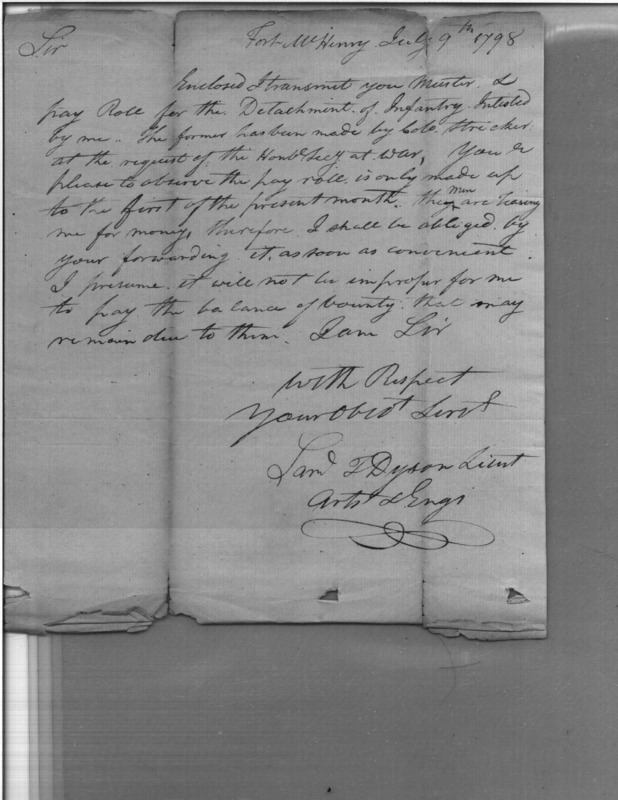 Fort McHenry July 9th 1798
Sir
Enclosed I transmit you Muster &
pay Roll for the Detachment of Infantry Inlisted
by me. The former has been made by Colo. Stricker
at the request of the Honbl Secy at War, You
please to observe the pay roll is only made up
to the first of the present month. the men are teasing
me for money, therefore I shall be obliged by
your forwarding it, as soon as convenient.
I presume it will not be improper for me
to pay the balance of bounty that may
remain due to them. I am Sir
With Respect
Your Obedt Servt
Saml T Dyson Lieut
Artst & Engs